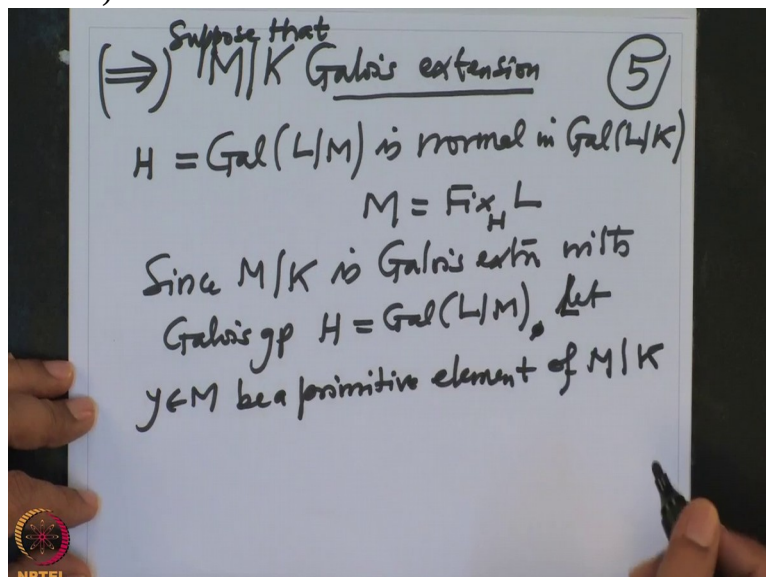 Suppose that
(⇒) M|K Galois extension
5
H = Gal(L|M) is normal in Gal(L|K)
M = Fix_H L
Since M|K is Galois extn with
Galois gp H = Gal(L|M). Let
y∈M be a primitive element of M|K
NPTEL